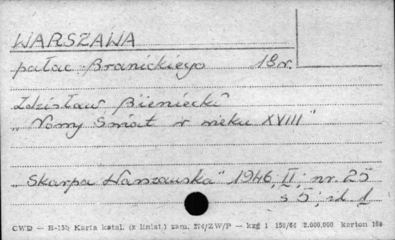 WARSZAWA
pałac Branickiego 18 w.
Zdzisław Bieniecki
"Nowy Świat w wieku XVIII"
"Skarpa Warszawska" 1946, II; nr. 25
s 5; il. 1
CWD — H-13b Karta katal. (z liniat.) zam. 270/ZW/P — kzg 1 150/64 2.000.000 karton 160